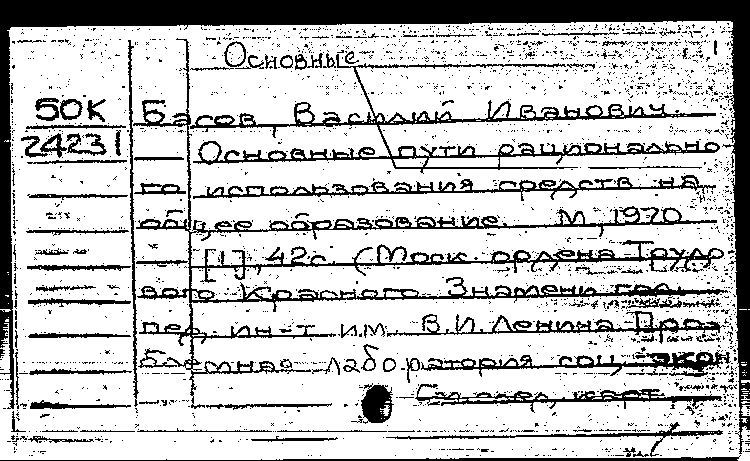 Основные
1
50К Басов, Василий Иванович.
24231 Основные пути рационально-
го использования средств на
общее образование. М., 1970
[1], 42с. (Моск. ордена Трудо-
вого Красного Знамени гос.
пед. ин-т им. В.И.Ленина Проб-
блемная лаборатория соц. экон
См. след. карт.